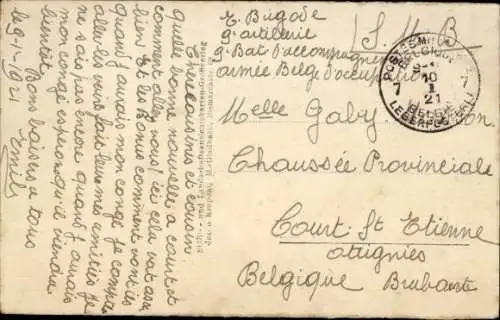 Chère cousines et cousin
quelle bonne nouvelle a court et
comment allez vous! ici cela vat assez
bien Et les Bonus comment vont ils
Quand j'aurais mon congé je compte
aller les voir fait leur mes amitiés je
ne sais pas encore quand j'aurais
mon congé esperons qu'il viendra
bientôt
Bons baisers a tous
Emile
le 9-1-1921
E. Bugode
9e artillerie
9e Bat d'accompagnement
armée Belge d'occupation
S.M.B
POSTES MILITAIRES
BELGIQUE
10
I
21
7 7
BELGIE
LEGERPOSTERIJ
Melle Gaby
Chaussée Provinciale
Court St Etienne
Belgique Brabant